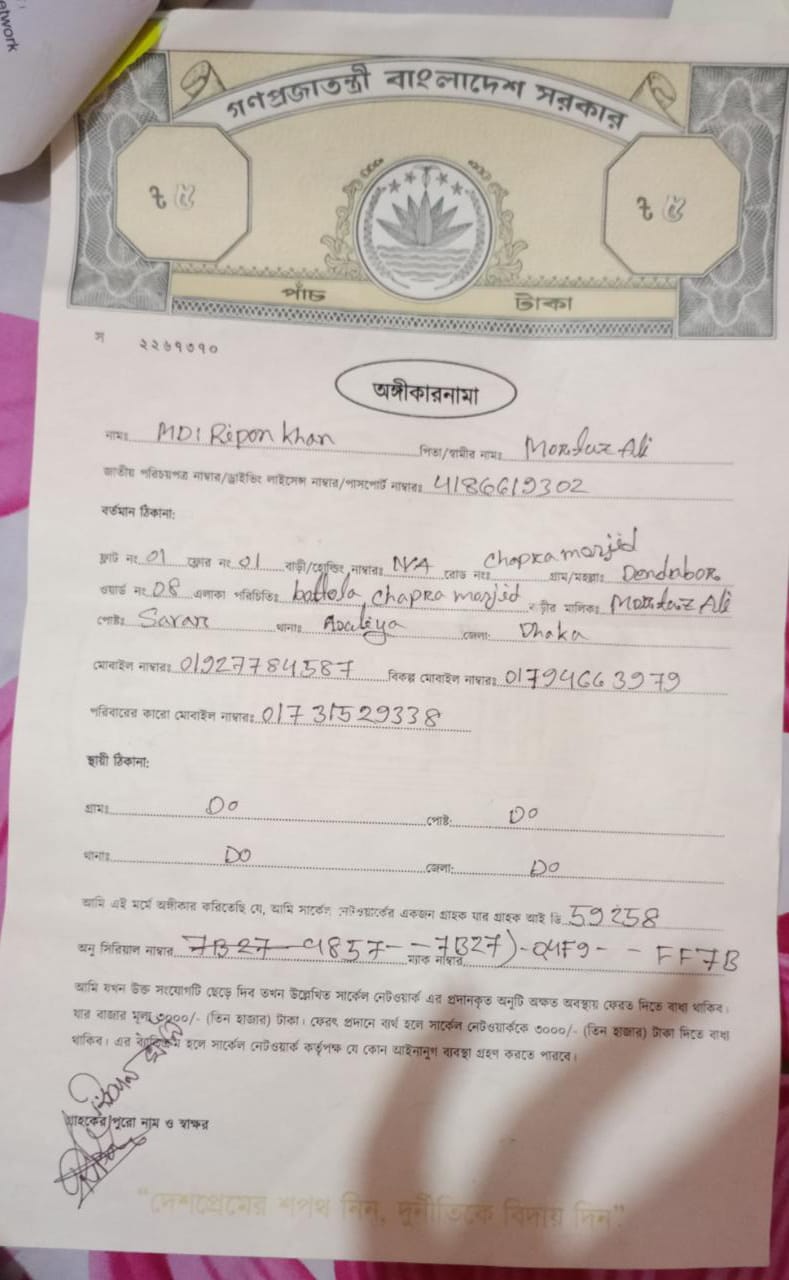 etwork
গণপ্রজাতন্ত্রী বাংলাদেশ সরকার
৳ ৫ ৳ ৫
পাঁচ টাকা
স ২২৬৭৩৭০
অঙ্গীকারনামা
নামঃ MD: Ripon Khan পিতা/স্বামীর নামঃ Ali
জাতীয় পরিচয়পত্র নাম্বার/ড্রাইভিং লাইসেন্স নাম্বার/পাসপোর্ট নাম্বারঃ 4186619302
বর্তমান ঠিকানা:
ফ্লাট নং 01 ফ্লোর নং 01 বাড়ী/হোল্ডিং নাম্বারঃ N/A রোড নংঃ Chapra masjid গ্রাম/মহল্লাঃ Dendabor
ওয়ার্ড নং 08 এলাকা পরিচিতিঃ battola, chapra masjid বাড়ীর মালিকঃ Ali
পোষ্টঃ Savar থানাঃ জেলা: Dhaka
মোবাইল নাম্বারঃ 01927784587 বিকল্প মোবাইল নাম্বারঃ 01794663979
পরিবারের কারো মোবাইল নাম্বারঃ 01731529338
স্থায়ী ঠিকানা:
গ্রামঃ DO পোষ্ট: DO
থানাঃ DO জেলা: DO
আমি এই মর্মে অঙ্গীকার করিতেছি যে, আমি সার্কেল নেটওয়ার্কের একজন গ্রাহক যার গ্রাহক আই ডি 59258
অনু সিরিয়াল নাম্বার 7B27-4857--7B27)-04F9-- FF7B ম্যাক নাম্বার
আমি যখন উক্ত সংযোগটি ছেড়ে দিব তখন উল্লেখিত সার্কেল নেটওয়ার্ক এর প্রদানকৃত অনুটি অক্ষত অবস্থায় ফেরত দিতে বাধ্য থাকিব।
যার বাজার মূল্য ৩০০০/- (তিন হাজার) টাকা। ফেরৎ প্রদানে ব্যর্থ হলে সার্কেল নেটওয়ার্ককে ৩০০০/- (তিন হাজার) টাকা দিতে বাধ্য
থাকিব। এর ব্যতিক্রম হলে সার্কেল নেটওয়ার্ক কর্তৃপক্ষ যে কোন আইনানুগ ব্যবস্থা গ্রহণ করতে পারবে।
রিপন খান
গ্রাহকের পুরো নাম ও স্বাক্ষর
"দেশপ্রেমের শপথ নিন, দুর্নীতিকে বিদায় দিন"